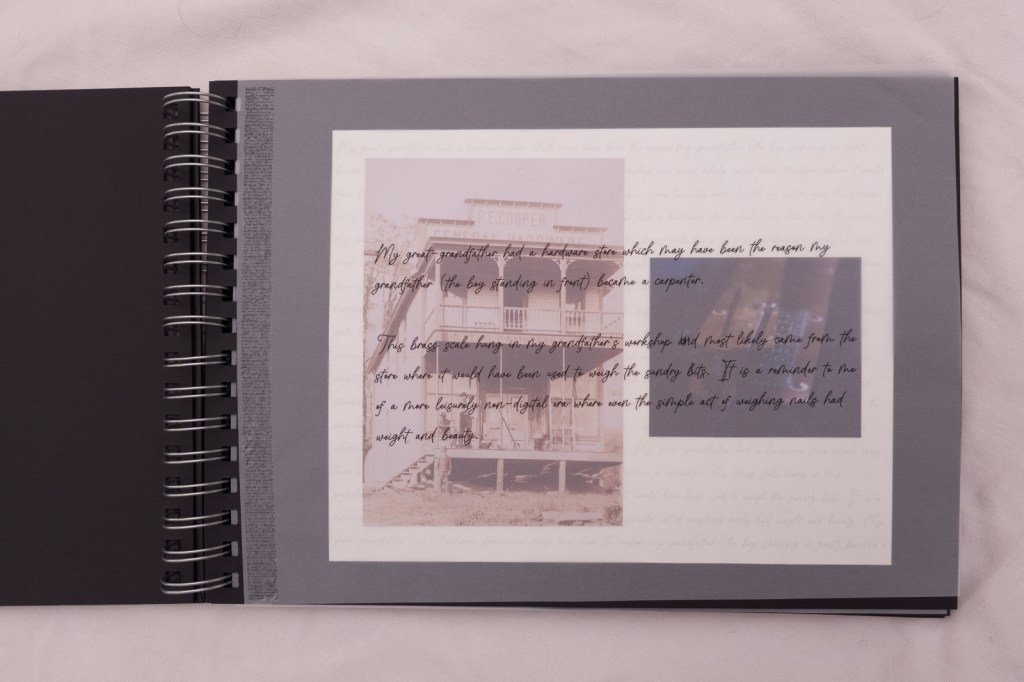 P.E. COOPER
GENERAL HARDWARE
My great-grandfather had a hardware store which may have been the reason my
grandfather (the boy standing in front) became a carpenter.
This brass scale hung in my grandfather's workshop and most likely came from the
store where it would have been used to weigh the sundry bits. It is a reminder to me
of a more leisurely non-digital era where even the simple act of weighing nails had
weight and beauty.